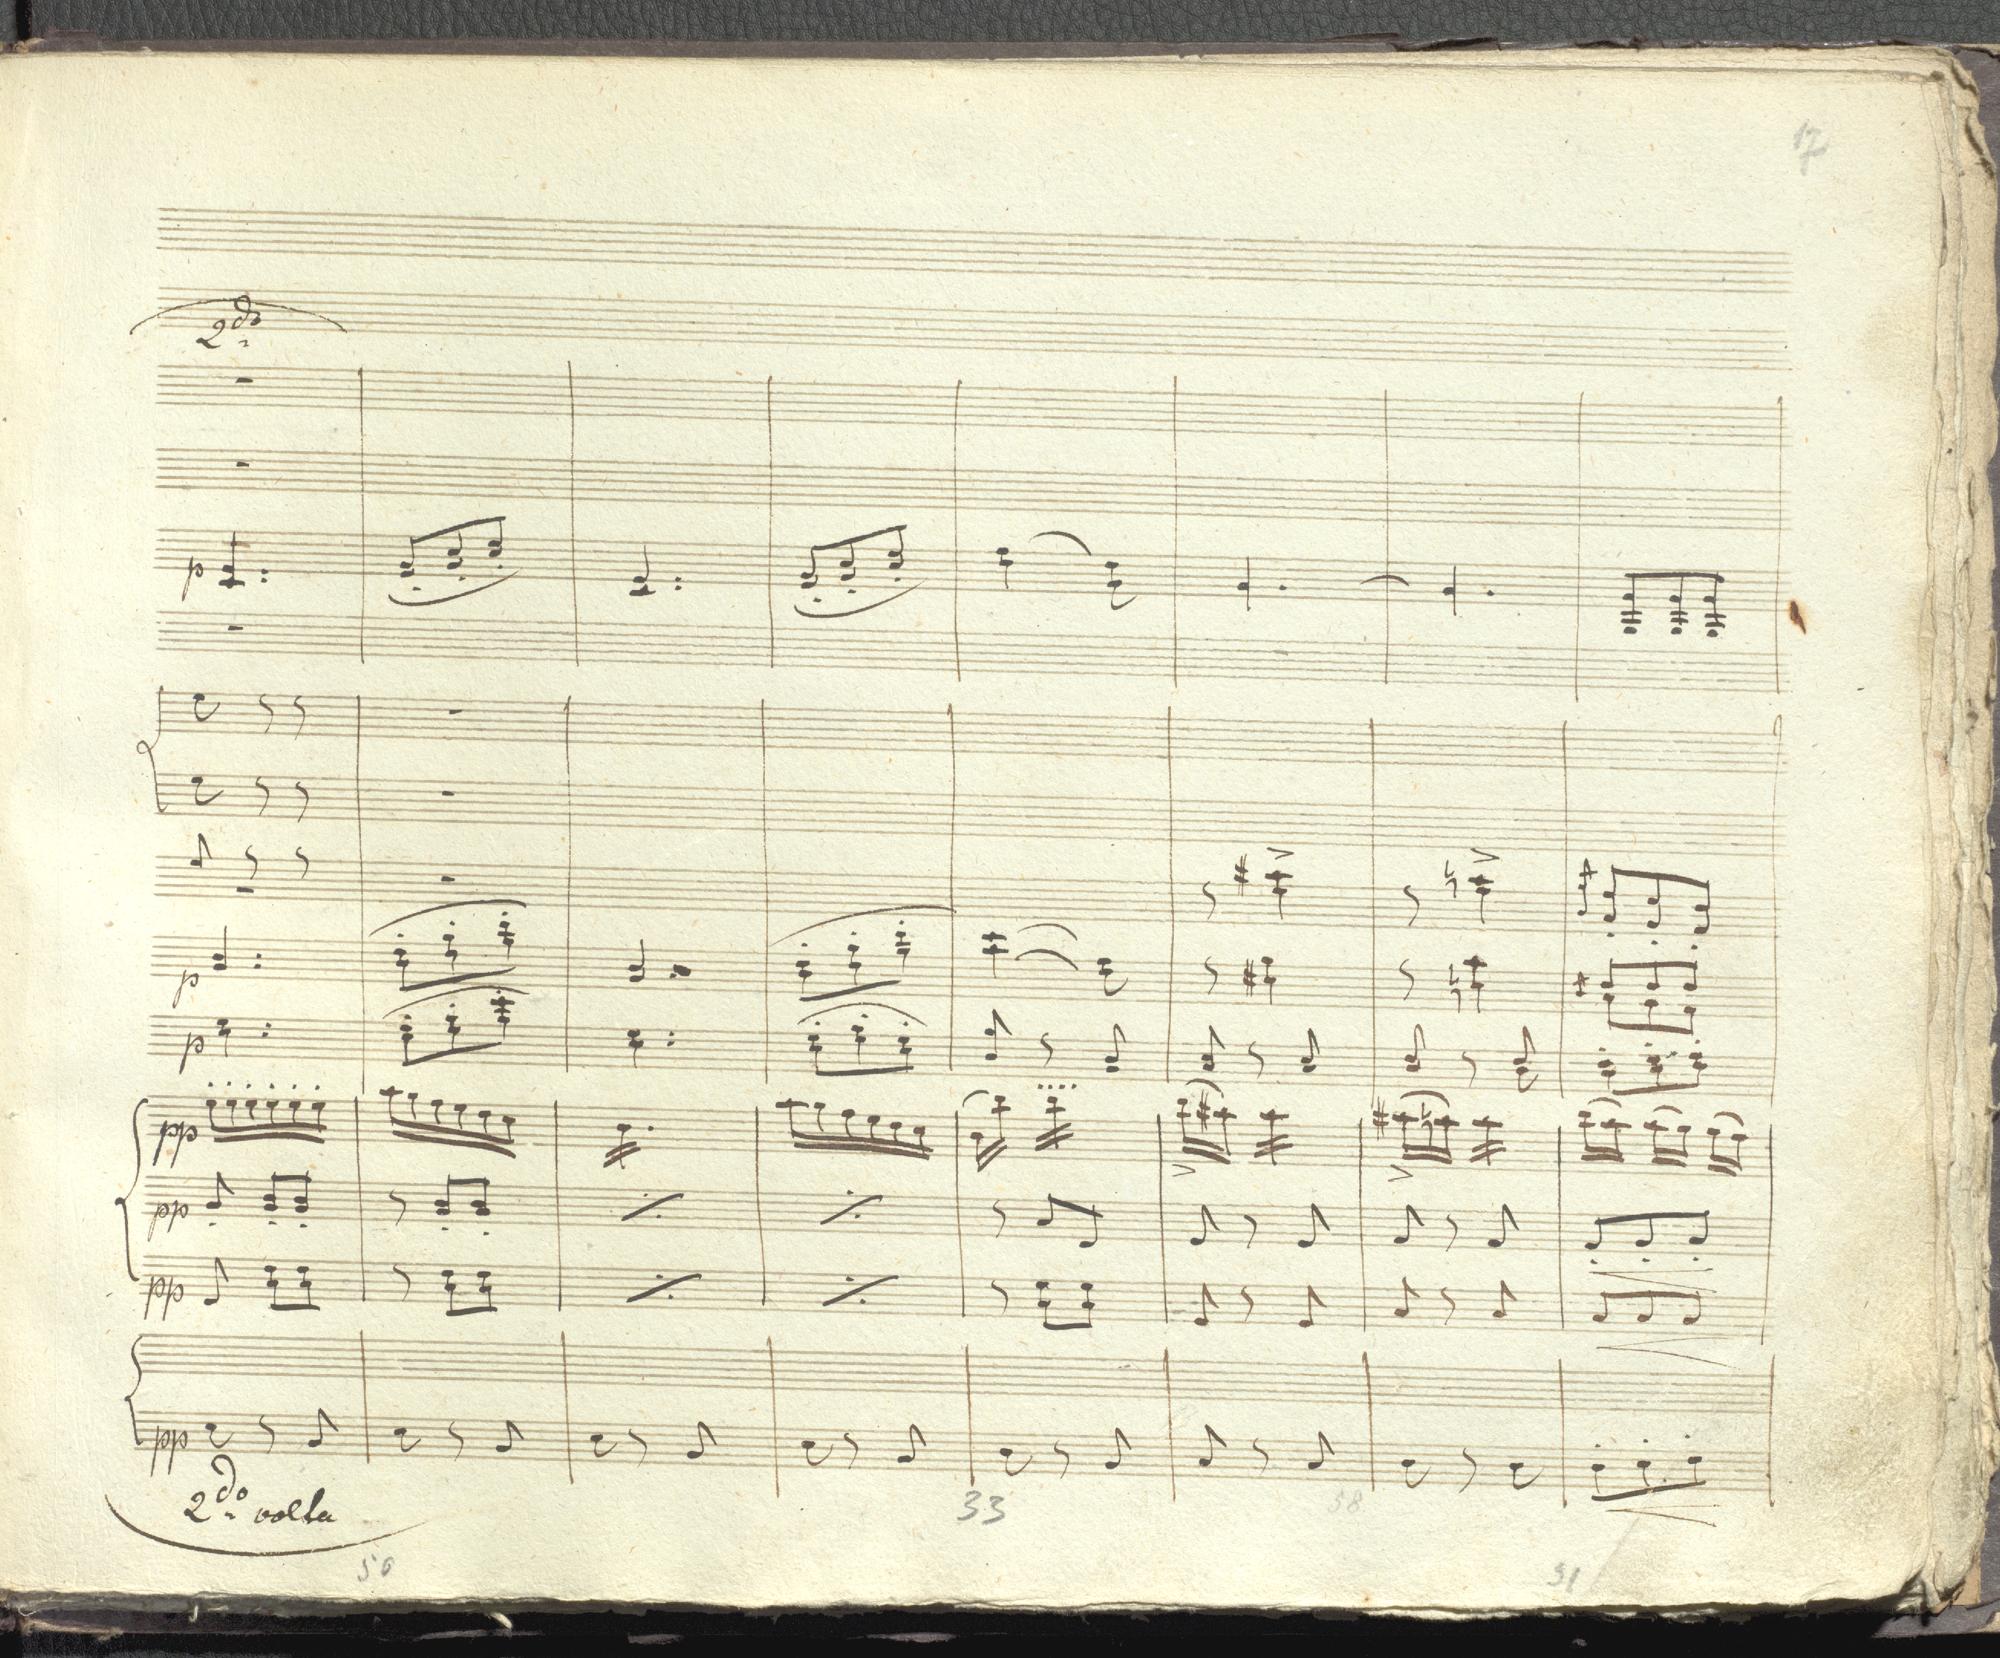 17
2do
p
p
p
pp
pp
pp
pp
2do volta
33
58
56
51